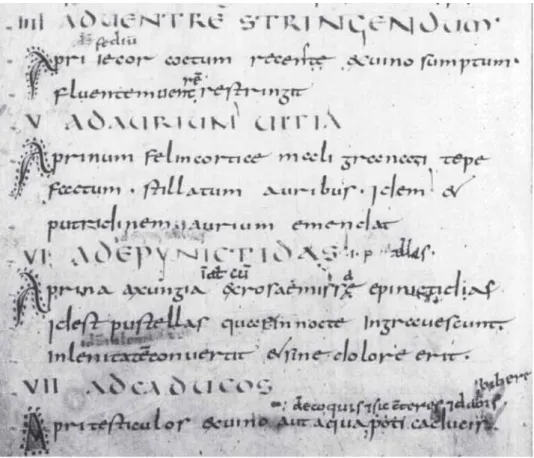 IIII AD VENTRĒ STRINGENDUM·
Apri iecor coctum recente &uino sumptum·
fluentem uentrē restringit
V AD AURIUM UITIA
Aprinum fel in cortice meli granati tepe
factum · stillatum auribus · idem &
putridinem aurium emendat
VI AD EPYNICTIDAS
Aprina axungia & rosa epinictidias
idest pustellas quae in nocte ingrauescunt·
In lenitatē conuertit & sine dolore erit·
VII AD CADUCOS
decoquis & sic teres & dabis
Apri testiculos &uino aut aqua poti caducis·